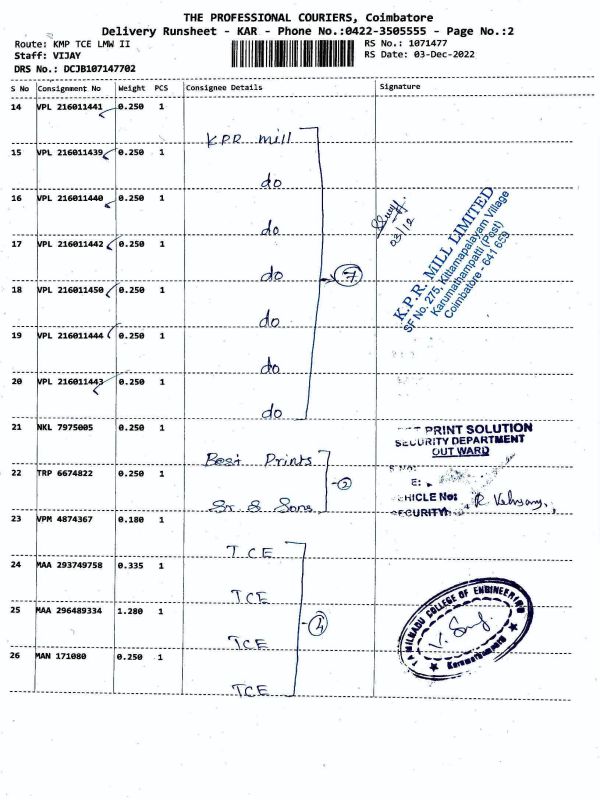 THE PROFESSIONAL COURIERS, Coimbatore
Delivery Runsheet - KAR - Phone No.:0422-3505555 - Page No.:2
Route: KMP TCE LMW II
RS No.: 1071477
Staff: VIJAY
RS Date: 03-Dec-2022
DRS No.: DCJB107147702
S No Consignment No Weight PCS Consignee Details Signature
14 VPL 216011441 0.250 1
KPR mill
15 VPL 216011439 0.250 1
do
16 VPL 216011440 0.250 1
do
17 VPL 216011442 0.250 1
do
18 VPL 216011450 0.250 1
do
19 VPL 216011444 0.250 1
do
20 VPL 216011443 0.250 1
do
7
03/12
K.P.R. MILL LIMITED
SF No. 275, Kittampalayam Village
Karumathampatti (Post)
Coimbatore - 641 659
21 NKL 7975005 0.250 1
Best Prints
22 TRP 6674822 0.250 1
Sr & Sons
2
PRINT SOLUTION
SECURITY DEPARTMENT
OUT WARD
E:
EHICLE No:
ECURITY:
23 VPM 4874367 0.180 1
TCE
24 MAA 293749758 0.335 1
TCE
25 MAA 296489334 1.280 1
TCE
26 MAN 171080 0.250 1
TCE
4
TAMILNADU COLLEGE OF ENGINEERING
Karumathampatti